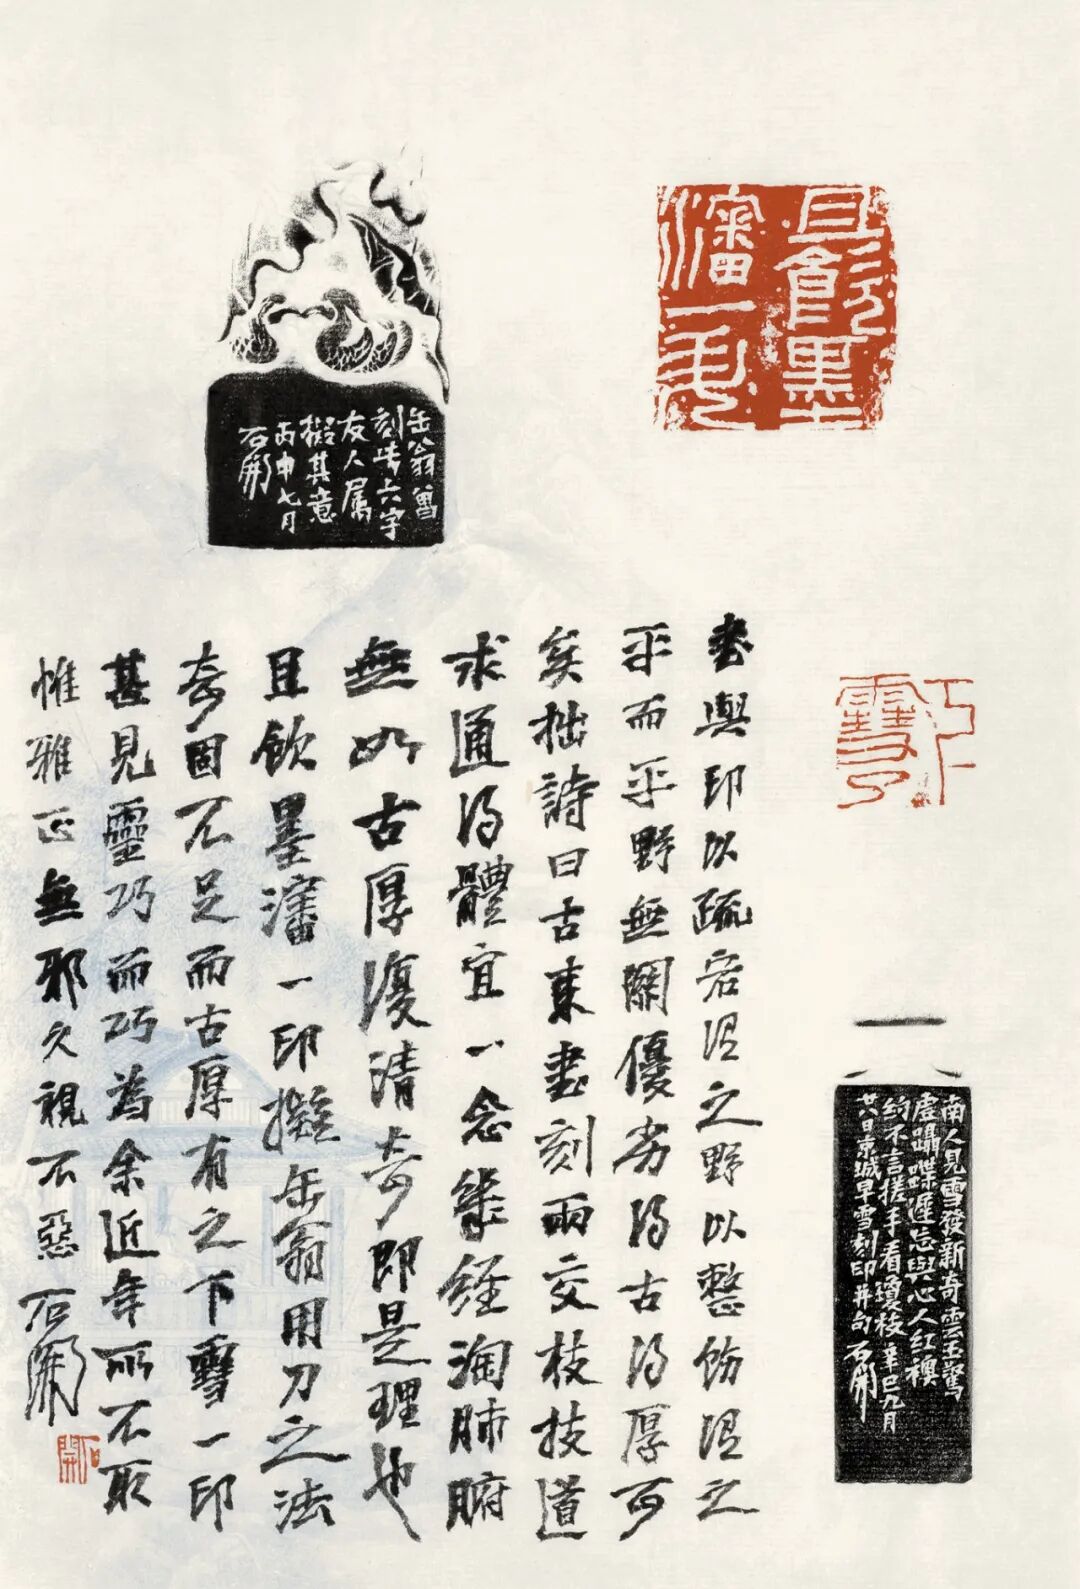 且飲墨
瀋一升
缶翁曾
刻此六字
友人属
擬其意
丙申七月
石開
下
雪了
南人見雪發新奇雲玉鸞
虛躡喋遲忘與心人紅襖
綺不言搓手看瓊枝辛巳九月
廿八日京城早雪刻印并句石開
書與印以疏宕得之野以整飭得之
平而平野無關優劣得古得厚可
矣拙詩曰古來書刻兩交枝技道
求通得體宜一念幾經淘肺腑
無如古厚復清奇即是理也
且飲墨瀋一印擬缶翁用刀之法
奇固不足而古厚有之下雪一印
甚見靈巧而巧為余近年所不取
惟雅正無邪久視不惡石開
石開